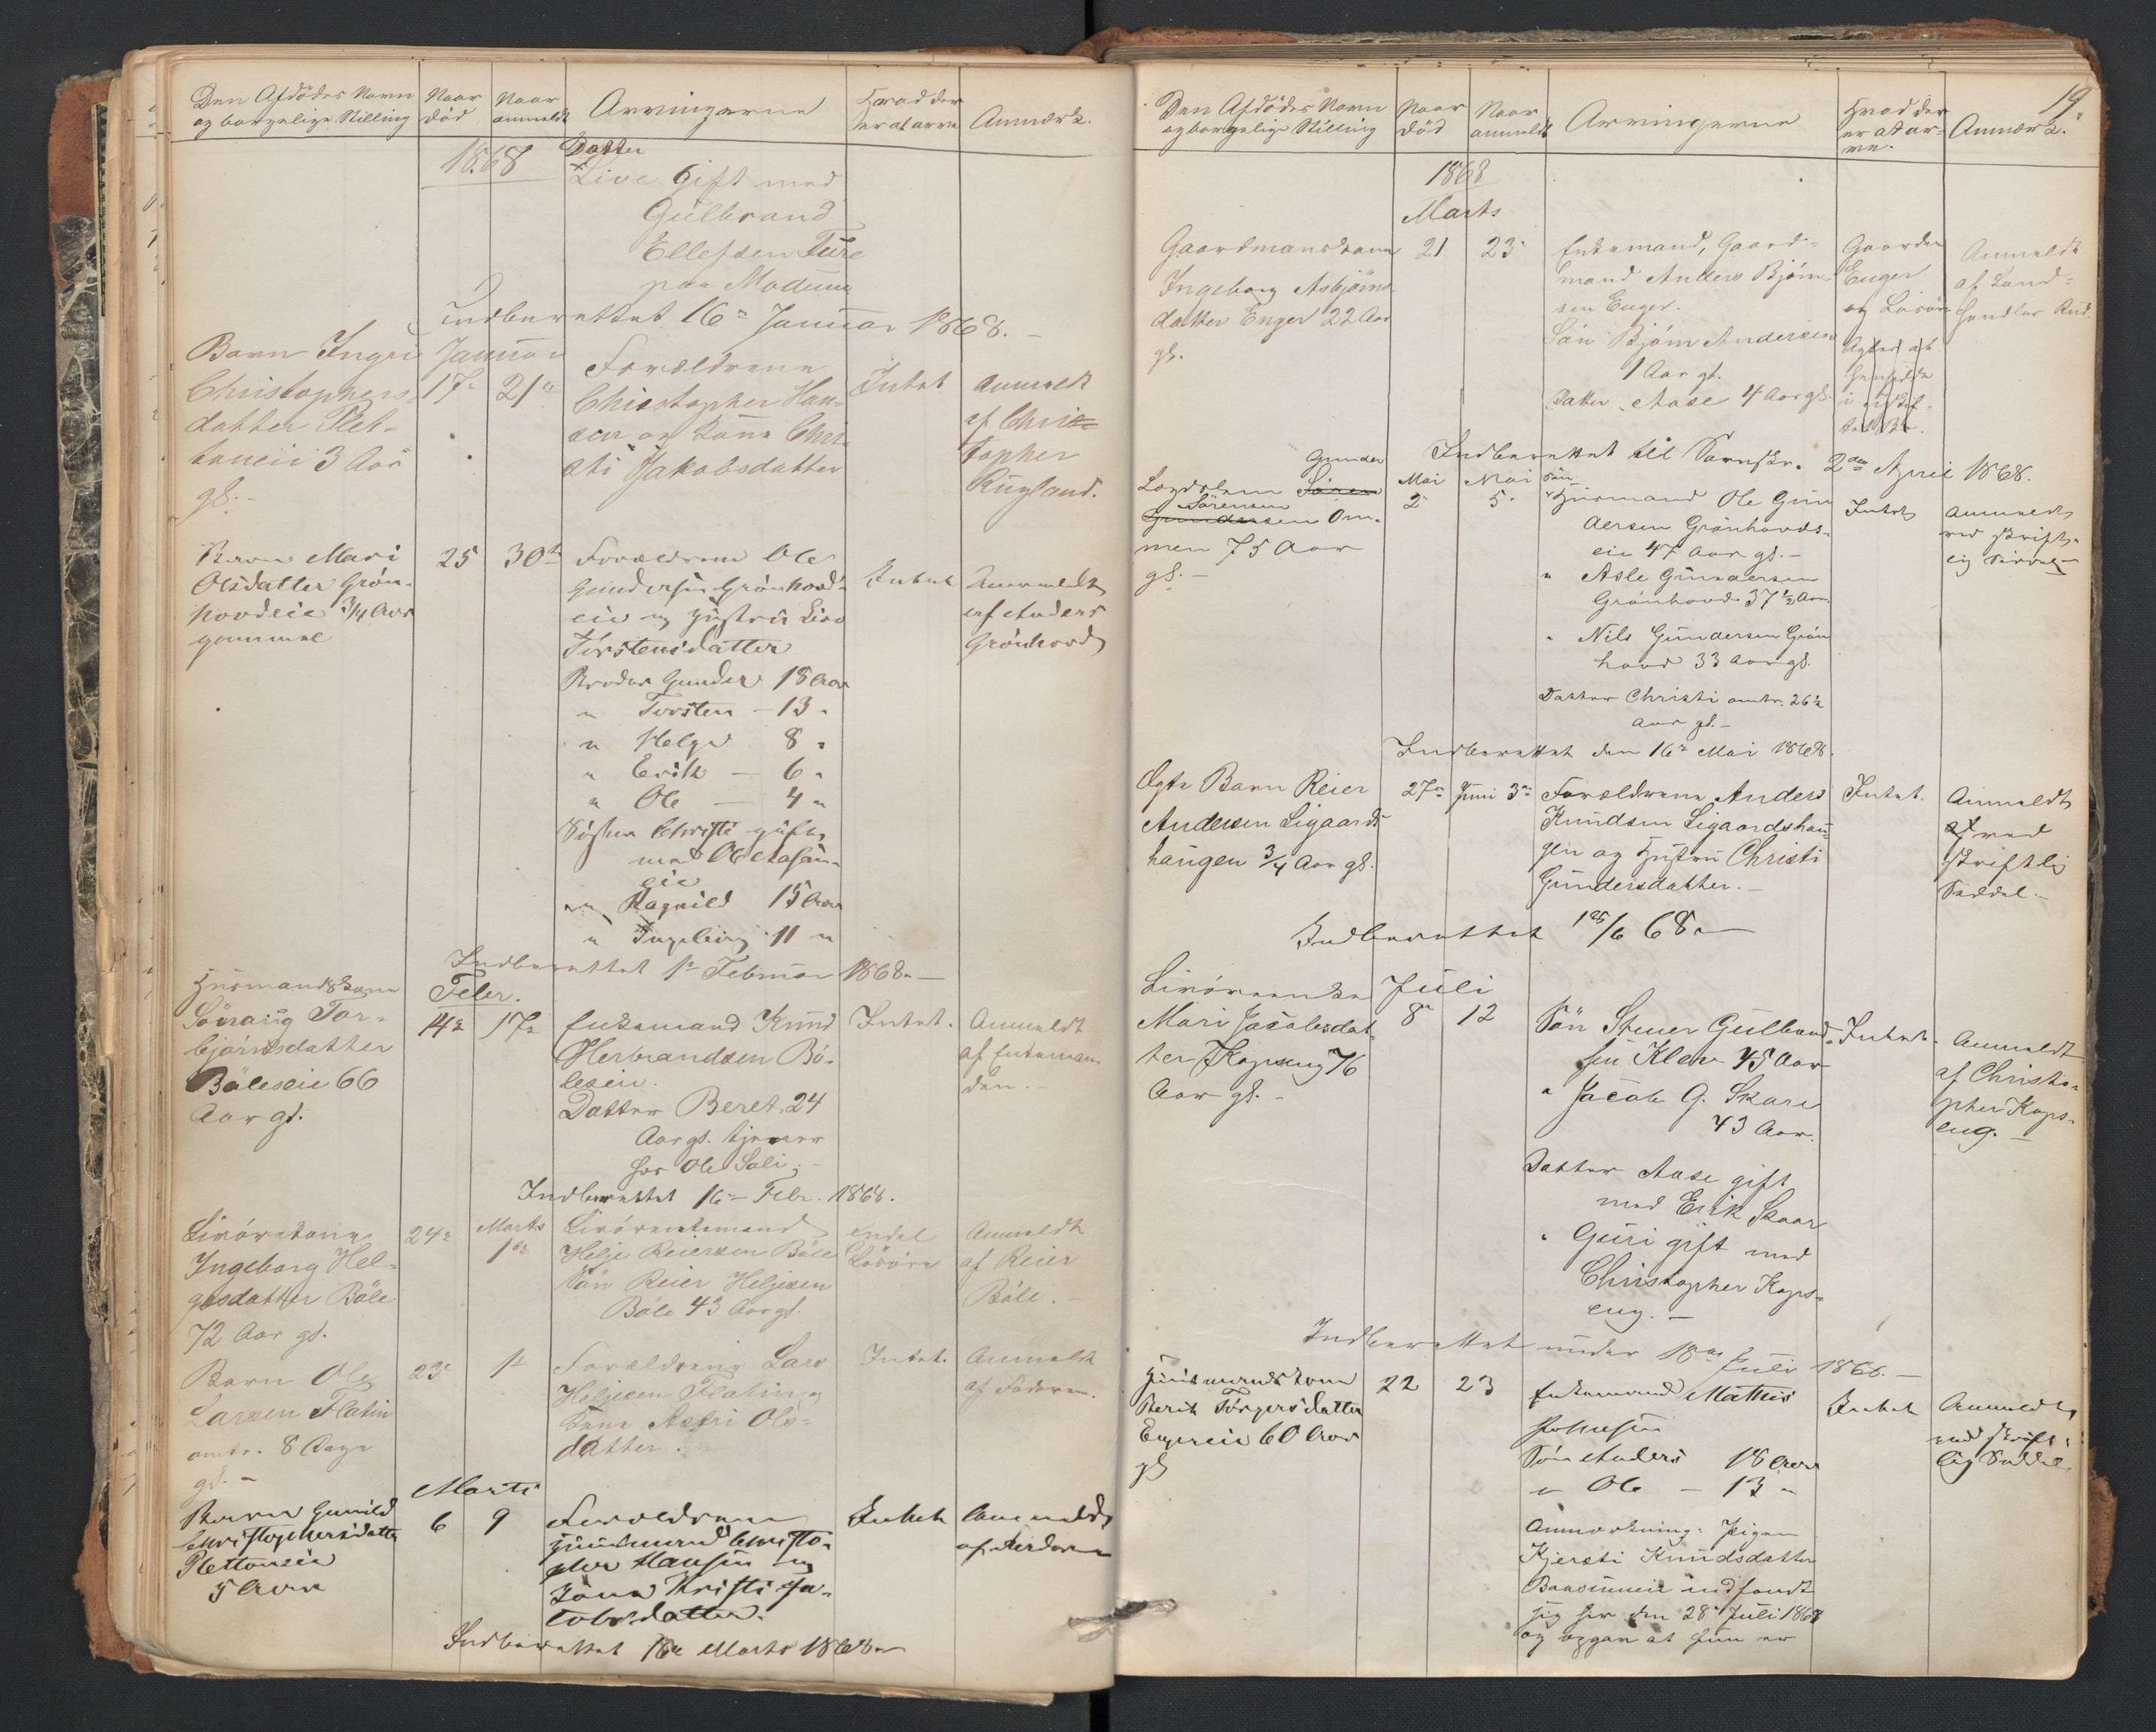 Den Afdødes Navn
og borgerlige Stilling
Naar
død
Naar
anmeldt
Arvingerne
Hvad der
er at arve
Anmærk.
1868
Datter
Live Gift med
Gulbrand
Ellefsen Ture
paa Modum
Indberettet 16de Januar 1868. -
Barn Ingri
Christophers-
datter Plet-
taneie 3 Aar
gl. -
Januar
17de
21de
Forældrene
Christopher Han-
sen og Kone Chri-
sti Jakobsdatter
Intet
Anmeldt
af Chris-
topher
Rugland.
Barn Mari
Olsdatter Grøn-
hovdeie 3/4 Aar
gammel
25
30te
Forældrene Ole
Gundersen Grønhovd-
eie og Hustru Live
Torstensdatter
Broder Gunder 18 Aar
" Torsten - 13 "
" Helge 8 "
" Erik - 6 "
" Ole - 4 "
Søster Christi gift
med Ole
eie
" Ragnild 15 Aar
" Ingeborg 11 "
Intet
Anmeldt
af Anders
Grønhovd
Indberettet 1ste Februar 1868. -
Husmandskone
Sønaug Tor-
bjørnsdatter
Bøleseie 66
Aar gl.
Febr.
14de
17de
Enkemand Knud
Herbrandsen Bø-
leseie.
Datter Beret 24
Aar gl. tjener
hos Ole Sali. -
Intet.
Anmeldt
af Enkeman-
den. -
Indberettet 16de Febr. 1868.
Livørekone
Ingeborg Hel-
gesdatter Bøle
72 Aar gl.
24de
Marts
1ste
Livørentemand
Helje Reiersen Bøle
Søn Reier Heljesen
Bøle 43 Aar gl.
endel
Løsøre
Anmeldt
af Reier
Bøle. -
Barn Ole
Larsen Flatin
omtr. 8 Dage
gl. -
23de
1ste
Forældrene Lars
Heljesen Flatin og
Kone Astri Ols-
datter.
Intet.
Anmeldt
af Faderen.
Marts
Barn Gunild
Christophersdatter
Plettaneie
5 Aar
6
9
Forældrene
Husmand Christo-
pher Hansen og
Kone Kristi Ja-
cobsdatter.
Intet
Anmeldt
af Faderen
Indberettet 16de Marts 1868. -
19.
Den Afdødes Navn
og borgerlige Stilling
Naar
død
Naar
anmeldt
Arvingerne
Hvad der
er at ar-
ve.
Anmærk.
1868
Marts
Gaardmandskone
Ingeborg Asbjørns-
datter Enger 22 Aar
gl.
21
23
Enkemand, Gaard-
mand Anders Bjørn-
sen Enger.
Søn Bjørn Andersen
1 Aar gl.
Datter Aase 4 Aar gl.
Gaarden
Enger
og Løsøre
Agter at
hensidde
i uskif-
tet Bo.
Anmeldt
af Land-
handler Rud.
Indberettet til Sornskr. 2den April 1868.
Gunder
Lægdslem Søren
Sørensen
Gundersen Om-
men 75 Aar
gl. -
Mai
2
Mai
5
Søn
Husmand Ole Gun-
dersen Grønhovds-
eie 47 Aar gl. -
" Asle Gundersen
Grønhovd 37 1/2 Aar.
" Nils Gundersen Grøn-
hovd 33 Aar gl.
Datter Christi omtr. 26 1/2
Aar gl. -
Intet
Anmeldt
ved skrift-
lig Seddel
Indberettet den 16de Mai 1868.
Ægte Barn Reier
Andersen Ligaards-
haugen 3/4 Aar gl.
27de
Juni 3de
Forældrene Anders
Knudsen Ligaardshau-
gen og Hustru Christi
Gundersdatter. -
Intet.
Anmeldt
af ved
skriftlig
Seddel. -
Indberettet 15/6 68. -
Livøreenke
Mari Jacobsdat-
ter Kopseng 76
Aar gl. -
Juli
8de
12
Søn Stener Gulbrand-
sen Kleve 45 Aar
" Jacob G. Skare
43 Aar.
Datter Aase gift
med Erik Skaar
" Guri gift med
Christopher Kops-
eng. -
Intet.
Anmeldt
af Christo-
pher Kops-
eng. -
Indberettet under 18de Juli 1868. -
Husmandskone
Berit Torgersdatter
Engereie 60 Aar
gl
22
23
Enkemand Mathis
Johnsen
Søn Anders 18 Aar
" Ole - 13 "
Anmærkning: Pigen
Kjersti Knudsdatter
indfandt
sig her den 28de Juli 1868
og opgav at hun er
Intet
Anmeldt
ved skrift-
lig Seddel